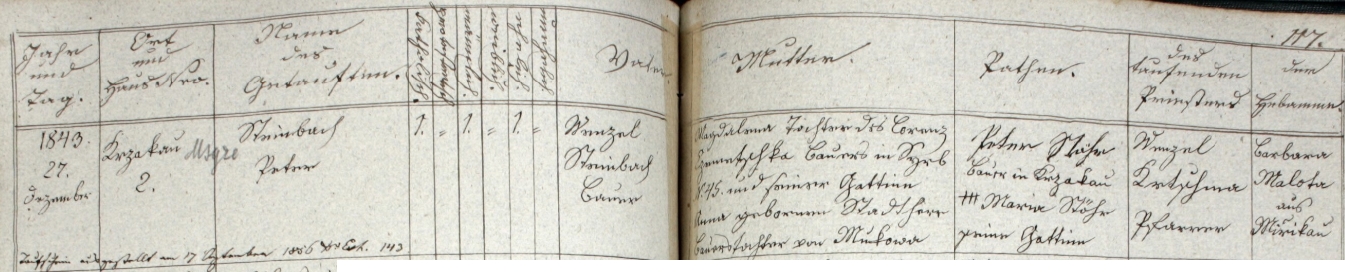 117.
Jahr
und
Tag.
Ort
und
Haus Nro.
Name
des
Getauften.
katholisch
männlich
weiblich
ehelich
unehelich
Vater.
Mutter.
Pathen.
des
taufenden
Priesters
der
Hebamme.
1843.
27.
Dezember
Krzakau
2.
Msgre
Steinbach
Peter
1. " 1. " 1. "
Wenzel
Steinbach
Bauer
Magdalena Tochter des Lorenz
Bauers in Syrb
N. 45. und seiner Gattinn
Anna gebornen Stadtherr
Bauerstochter von Mukowa
Peter Stöhr
Bauer in Krzakau
††† Maria Stöhr
seine Gattinn
Wenzel
Krtschma
Pfarrer
Barbara
Malota
aus
Mirikau
Taufschein ausgestellt am 17 September 1856 143